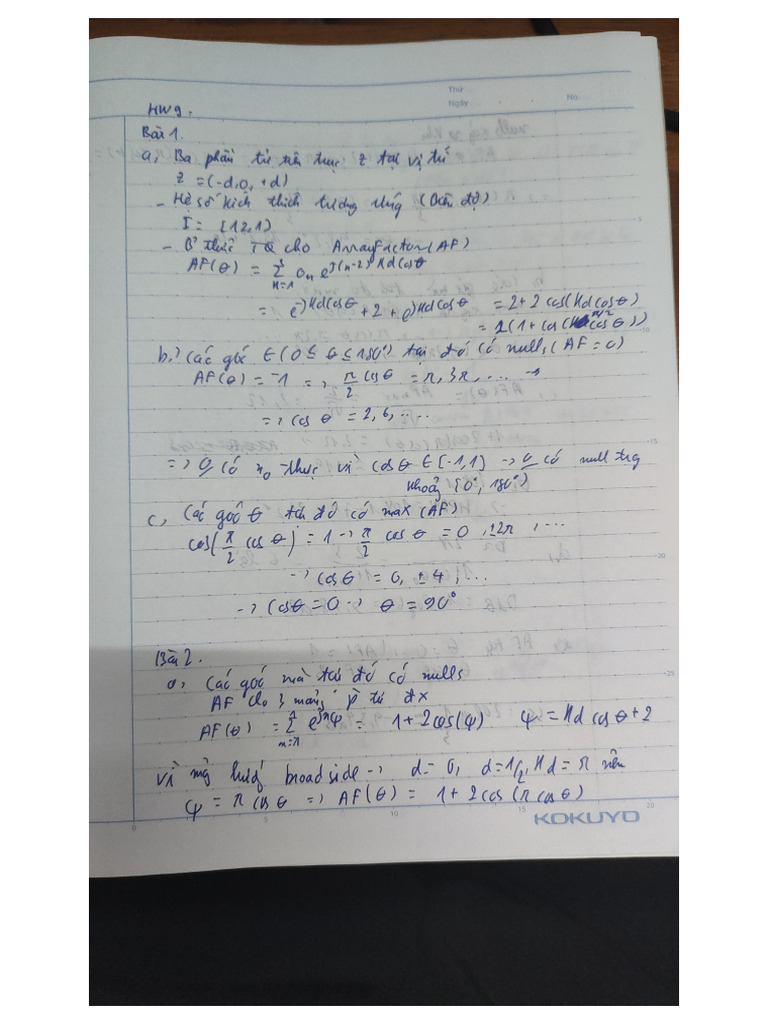 Thứ
Ngày
No.
HW9.
Bài 1.
a, Ba phần tử trên trục z tại vị trí
z = (-d, 0, +d)
- Hệ số kích thích tương ứng (biên độ)
I = [1 2, 1]
- B thức TQ cho Array Factor (AF)
AF(θ) = Σ_{n=1}^{3} a_n e^{j(n-2)Kdcosθ}
= e^{-jKdcosθ} + 2 + e^{jKdcosθ} = 2 + 2 cos(Kdcosθ)
= 2(1 + cos(π/2 cosθ))
b, Các góc ∈ (0 ≤ θ ≤ 180°) tại đó có nulls (AF = 0)
AF(θ) = -1 => π/2 cosθ = π, 3π, ... →
=> cosθ = 2, 6, ...
=> có n₀ thực vì cosθ ∈ [-1, 1] → có null trg
khoảng [0°, 180°)
c, Các góc θ tại đó có max (AF)
cos(π/2 cosθ) = 1 → π/2 cosθ = 0, ±2π, ...
→ cosθ = 0, ±4, ...
→ cosθ = 0 → θ = 90°
Bài 2.
a, Các góc mà tại đó có nulls
AF cho 3 mảng p tử đx
AF(θ) = Σ e^{jnψ} = 1 + 2cos(ψ) ψ = Kd cosθ + 2
Vì mảng hướng broadside → d = 0, d = 1/2, Kd = π nên
ψ = π cosθ => AF(θ) = 1 + 2cos(π cosθ)
KOKUYO